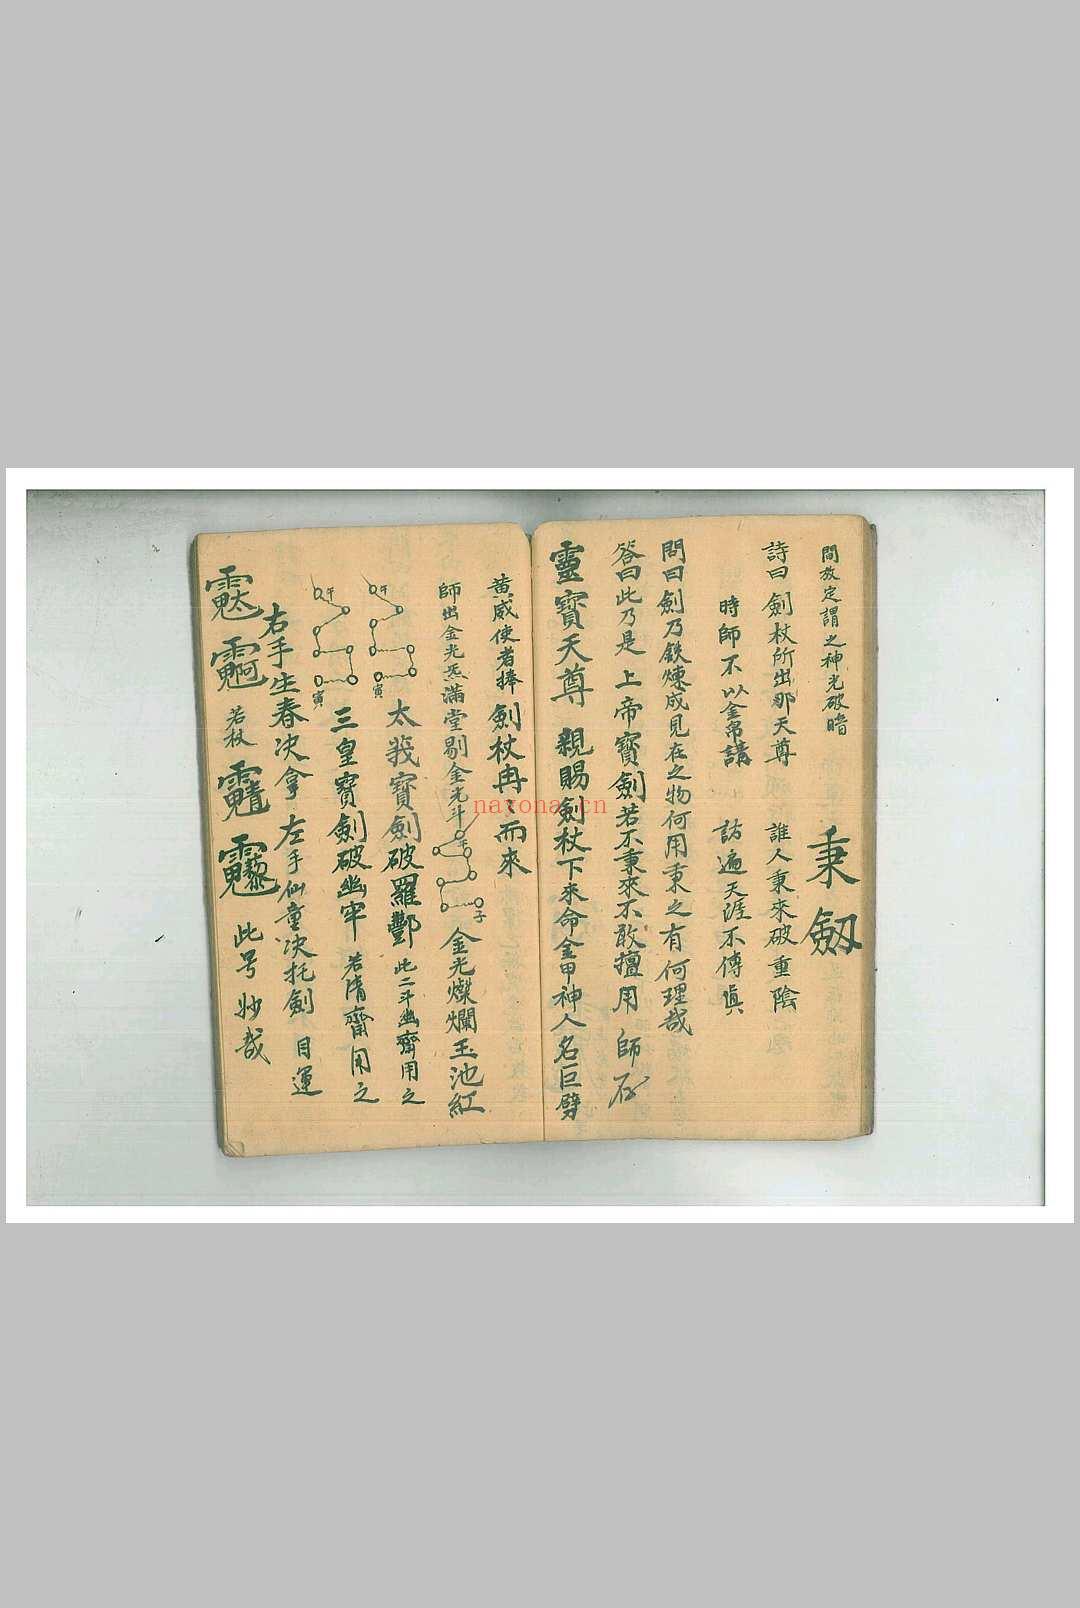 間放定謂之神光破暗
秉劔
詩曰劍杖所出那天尊 誰人秉來破重陰
時師不以金帛講 訪遍天涯不傳眞
問曰劍乃鉄煉成見在之物何用秉之有何理哉
答曰此乃是 上帝寶劍若不秉來不敢擅用 師
靈寶天尊 親賜劍杖下來命金甲神人名巨劈
黄威使者捧劍杖冉〻而來
師出金光炁滿堂剔金光斗 午 子 金光燦爛玉池紅
午 寅 太莪寶劍破羅酆 此二斗幽齋用之
午 寅 三皇寶劍破幽牢 若清齋用之
右手生春決拿 左手仙童決托劍 目運
若杖 此号妙哉
navona.cn